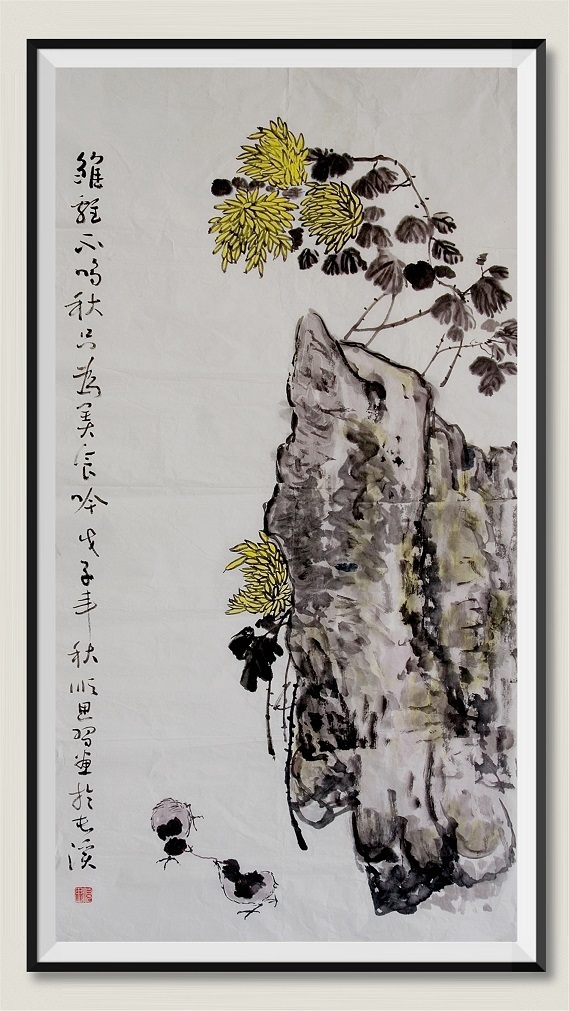 雏雞不鸣秋只为美辰吟戊子年秋顺思习画於屯溪